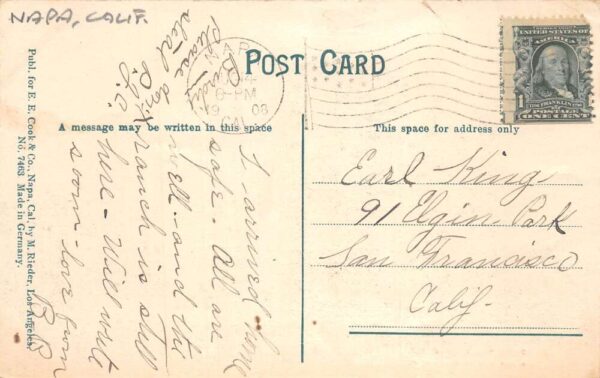 NAPA, CALIF.
POST CARD
NAPA
6-PM
1908
CAL.
UNITED STATES OF
1
FRANKLIN
POSTAGE
ONE CENT
A message may be written in this space
This space for address only
Please
send my
I arrived here
safe. All are
well - and the
ranch is still
here - Will write
soon - love from
Earl King
91 Elgin Park
San Francisco
Calif.
Publ. for E. E. Cook & Co., Napa, Cal. by M. Rieder, Los Angeles.
No. 7463 Made in Germany.